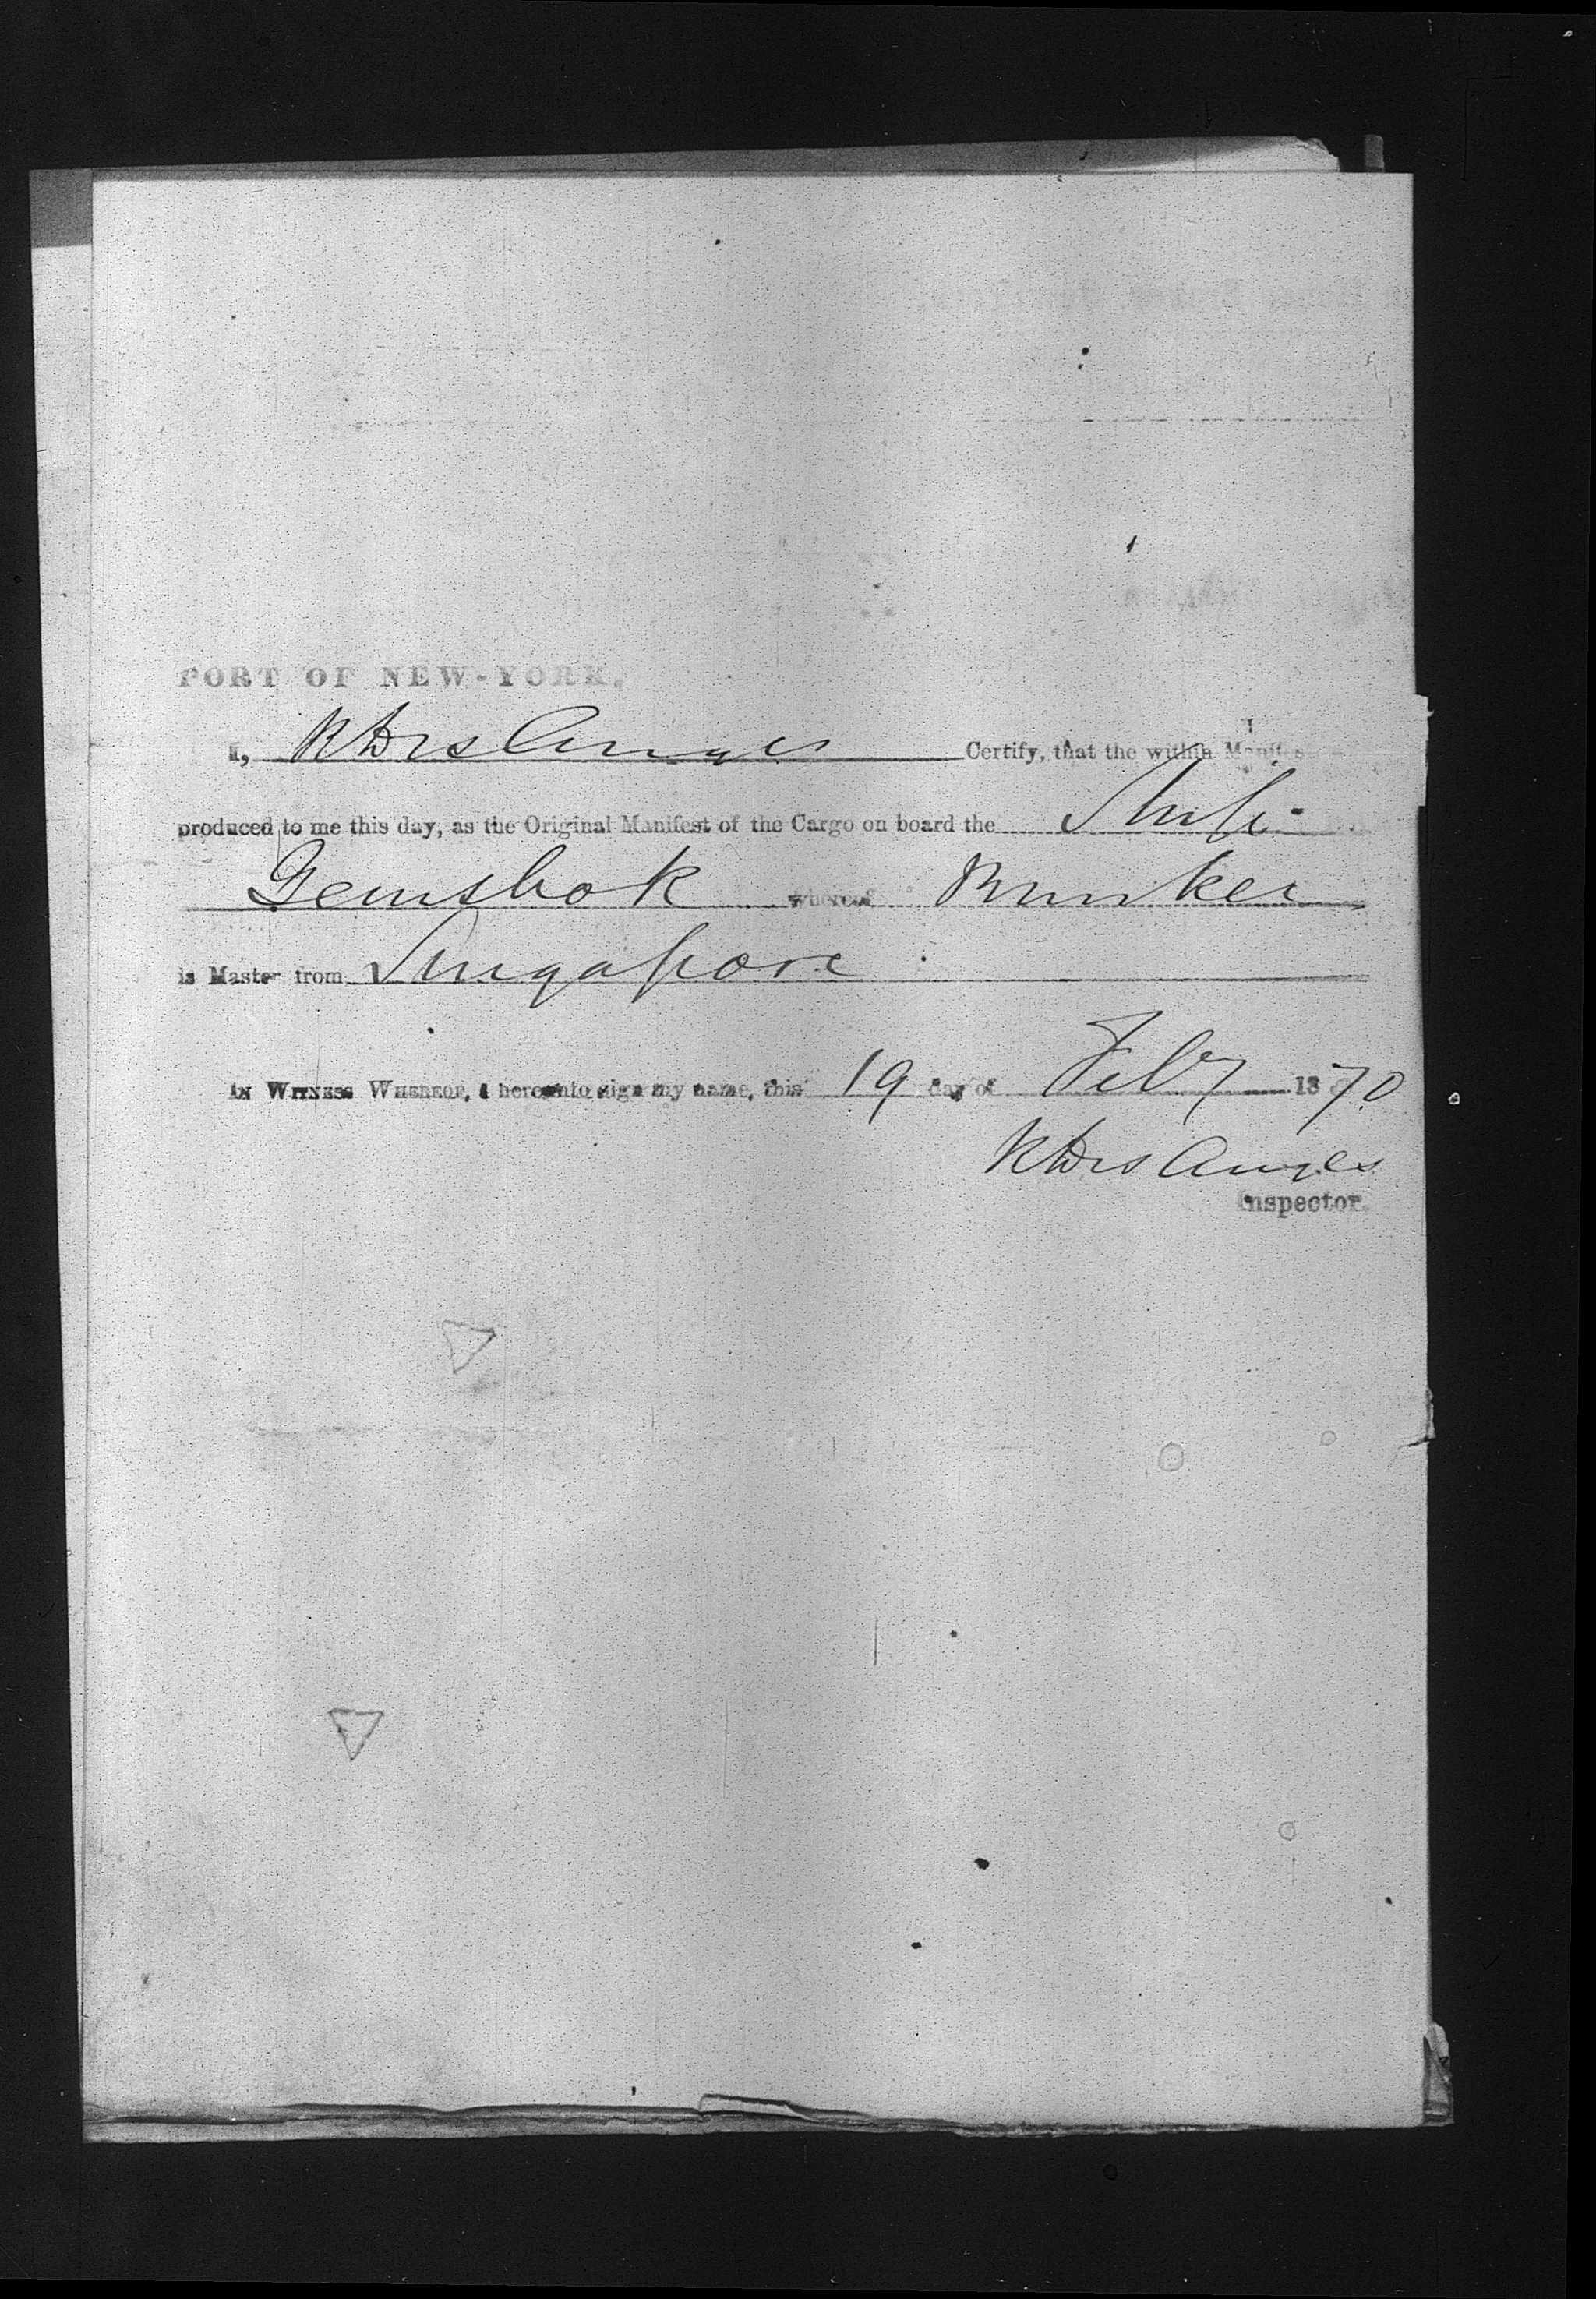 PORT OF NEW-YORK.
I, Certify, that the within Manifest
produced to me this day, as the Original Manifest of the Cargo on board the Ship
Gemsbok whereof Bunker
is Master from Singapore
IN WITNESS WHEREOF, I hereunto sign my name, this 19 day of Feby 1870
Inspector.